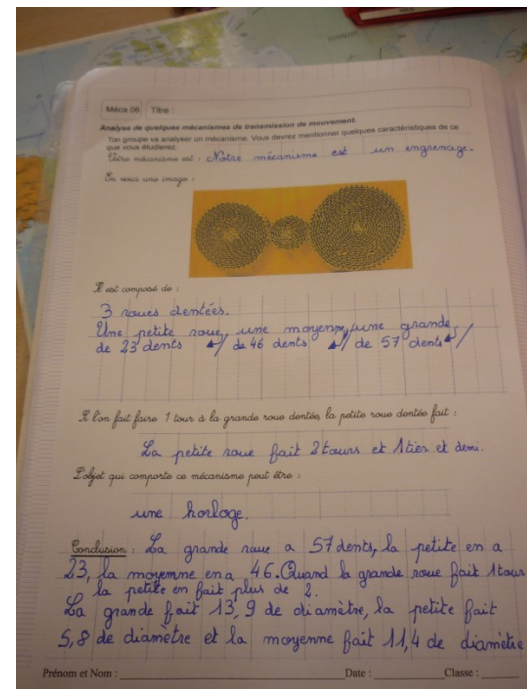 Méca 06 Titre :
Analyse de quelques mécanismes de transmission de mouvement.
Ton groupe va analyser un mécanisme. Vous devrez mentionner quelques caractéristiques de ce
que vous étudierez.
Votre mécanisme est : Notre mécanisme est un engrenage.
En voici une image :
Il est composé de :
3 roues dentées.
Une petite roue, une moyenne, une grande
de 23 dents de 46 dents de 57 dents
Si l'on fait faire 1 tour à la grande roue dentée, la petite roue dentée fait :
La petite roue fait 2 tours et 1 tier et demi.
L'objet qui comporte ce mécanisme peut être :
une horloge.
Conclusion : La grande roue a 57 dents, la petite en a
23, la moyenne en a 46. Quand la grande roue fait 1 tour
la petite en fait plus de 2.
La grande fait 13,9 de diamètre, la petite fait
5,8 de diamètre et la moyenne fait 11,4 de diamètre
Prénom et Nom : Date : Classe :